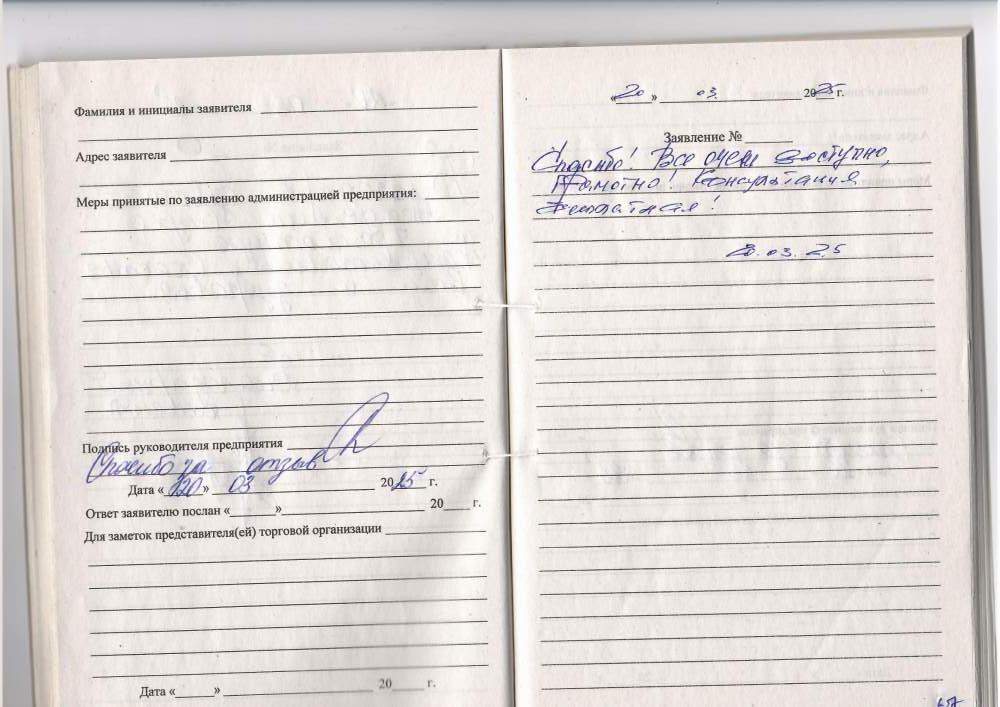 Фамилия и инициалы заявителя
Адрес заявителя
Меры принятые по заявлению администрацией предприятия:
Подпись руководителя предприятия
Спасибо за отзыв
Дата «20» 03 2025 г.
Ответ заявителю послан « » 20 г.
Для заметок представителя(ей) торговой организации
Дата « » 20 г.
«20» 03. 2025 г.
Заявление №
Спасибо! Все очень доступно,
Грамотно! Консультация
бесплатная!
20.03.25